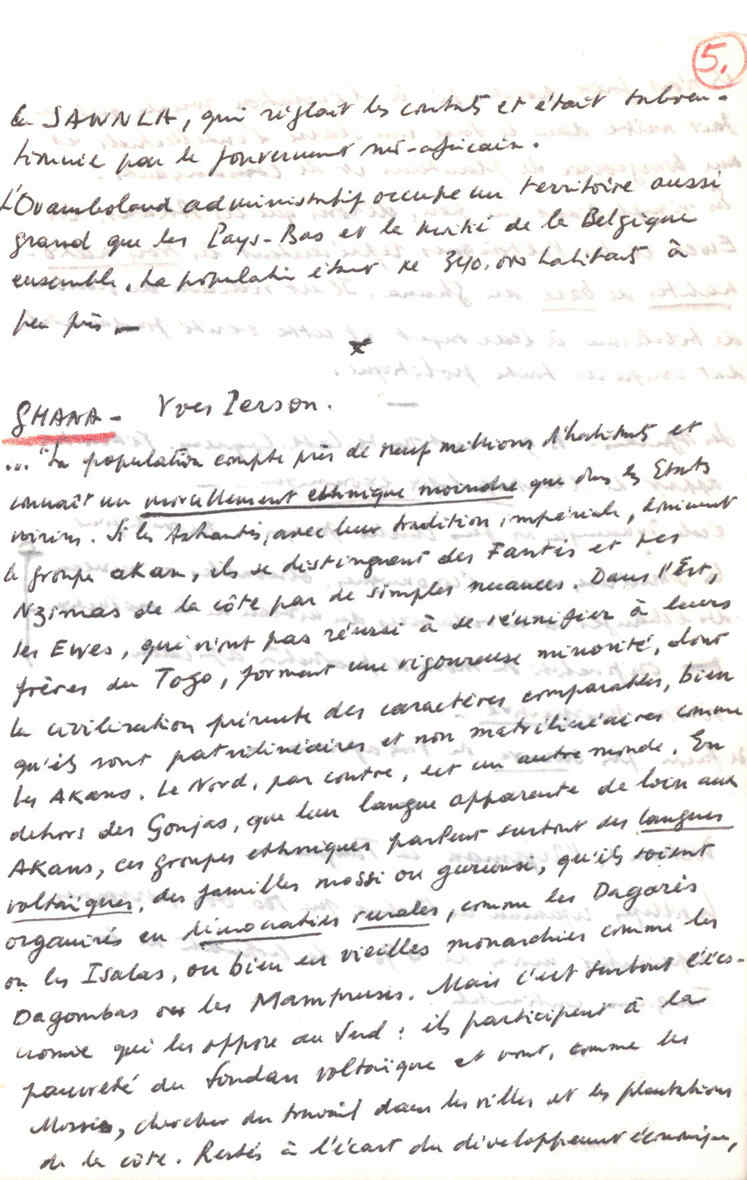 5.
la SAWNLA, qui réglait les contrats et était subven-
tionnée par le gouvernement sud-africain.
L'Ovamboland administratif occupe un territoire aussi
grand que les Pays-Bas et la moitié de la Belgique
ensemble. La population étant de 340.000 habitants à
peu près. —
x
GHANA - Yves Person.
... "La population compte près de neuf millions d'habitants et
connaît un morcellement ethnique moindre que dans les Etats
voisins. Si les Ashantis, avec leur tradition impériale, dominent
le groupe akan, ils se distinguent des Fantis et des
Nzimas de la côte par de simples nuances. Dans l'Est,
les Ewes, qui n'ont pas réussi à se réunifier à leurs
frères du Togo, forment une vigoureuse minorité, dont
la civilisation présente des caractères comparables, bien
qu'ils sont patrilinéaires et non matrilinéaires comme
les Akans. Le Nord, par contre, est un autre monde. En
dehors des Gonjas, que leur langue apparente de loin aux
Akans, ces groupes ethniques parlent surtout des langues
voltaïques, des familles mossi ou gurense, qu'ils soient
organisés en démocraties rurales, comme les Dagaris
ou les Isalas, ou bien en vieilles monarchies comme les
Dagombas ou les Mamprusis. Mais c'est surtout l'éco-
nomie qui les oppose au Sud : ils participent à la
pauvreté du Soudan voltaïque et vont, comme les
Mossis, chercher du travail dans les villes et les plantations
de la côte. Restés à l'écart du développement économique,